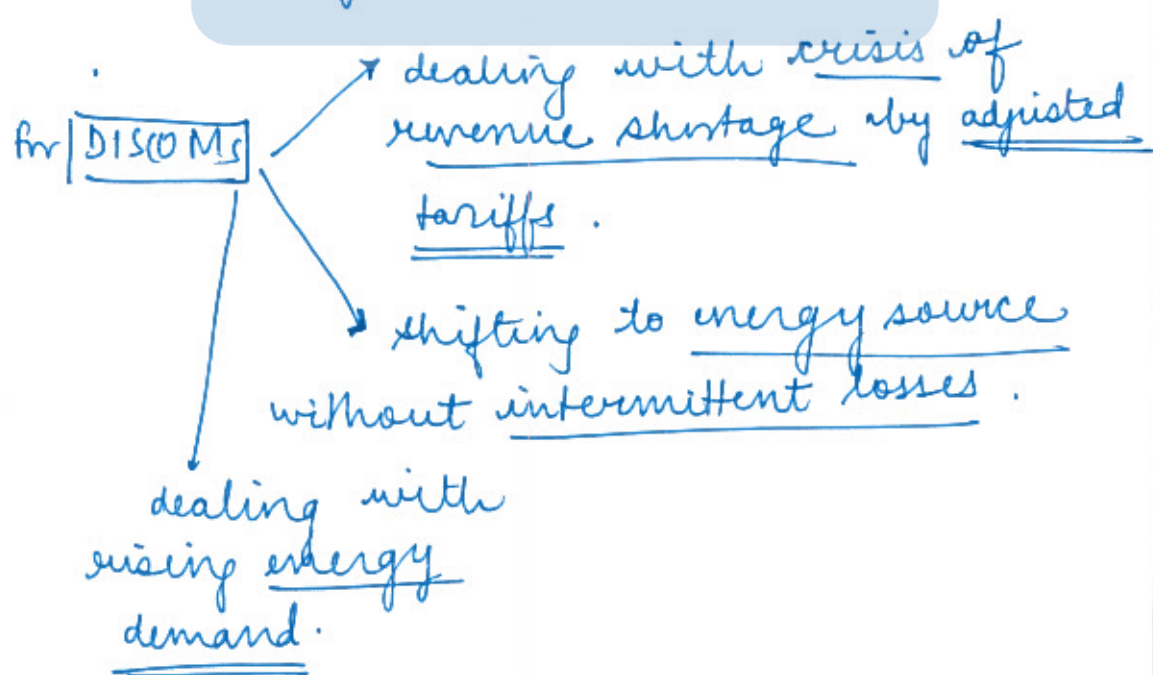 dealing with crisis of
for DISCOMs
revenue shortage by adjusted
tariffs.
shifting to energy source
without intermittent losses.
dealing with
rising energy
demand.